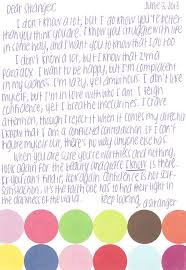 Dear Stranger, June 3, 2013
I don't know a lot, but I do know you're better
than you think you are. I know you struggle with life
in some way, and I want you to know that I do too
I don't know a lot, but I know that I'm a
paradox. I want to be happy, but I'm complacent
in my sadness. I'm lazy, yet ambitious. I don't like
myself, but I'm in love with who I am. I reign
confidence, yet I breathe insecurities. I crave
attention, though I reject it when it comes my direction
I know that I am a conflicted contradiction. If I can't
figure myself out, there's no way anyone else has.
When you are sure you're worthless and nothing,
look again for the beauty and grace I know is there.
If you can't find it, look again. Confidence is not self-
satisfaction, it's the faith one has to find their light in
the darkness of the world.
Keep looking,
a stranger